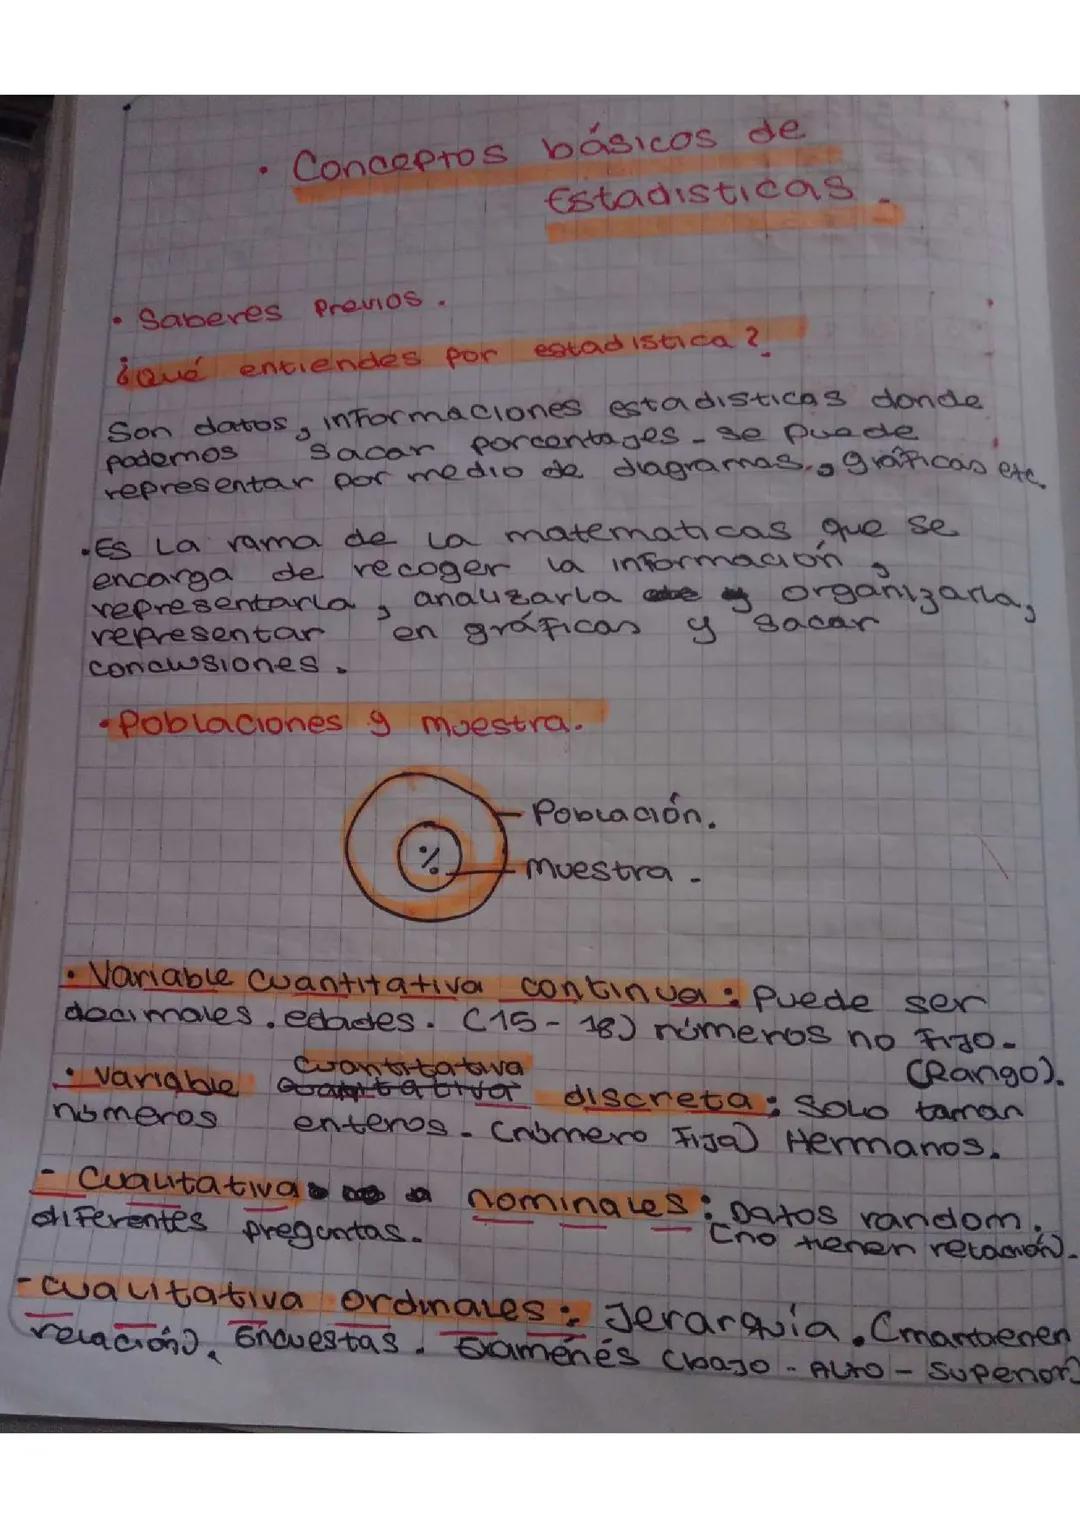 · Conceptos básicos de
Estadisticas.
· Saberes Previos.
¿Qué entiendes por estadistica?
Son datos, informaciones estadisticas donde
podemos sacar porcentages. se puede
representar por medio de diagramas, gráficas etc.
·Es La rama de La matematicas que se
encarga de recoger la información,
representarla, analizarla y organizarla,
representar en gráficas y sacar
conclusiones.
·Poblaciones y muestra.
Población.
%
muestra.
· Variable Cuantitativa continua: Puede ser
decimales. edades. (15-18) números no Fijo.
(Rango).
Cuantitativa
· Variable discreta: Solo toman
números enteros. (número Fija) Hermanos.
- Cualitativa nominales: Datos random.
diferentes preguntas. (no tienen relación).
-cualitativa ordinales: Jerarquía. (mantienen
relación), Encuestas. Examénés (bajo - Alto - Superior)